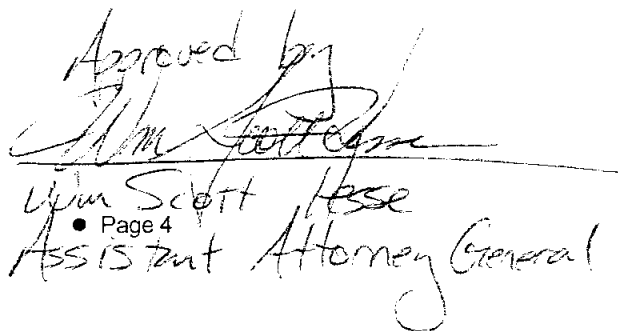 Approved by
Wm Scott Hesse
Wm Scott Hesse
● Page 4
Assistant Attorney General